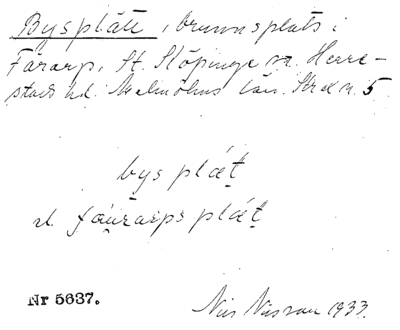 Bysplätt, brunnsplats i
Fårarp, St. Slöpinge sn. Herre-
stads hd. Malmöhus län. Strex n. 5
bys plæt
el. fåurarps plæt
Nr 5637.
Nils Nilsson 1933.